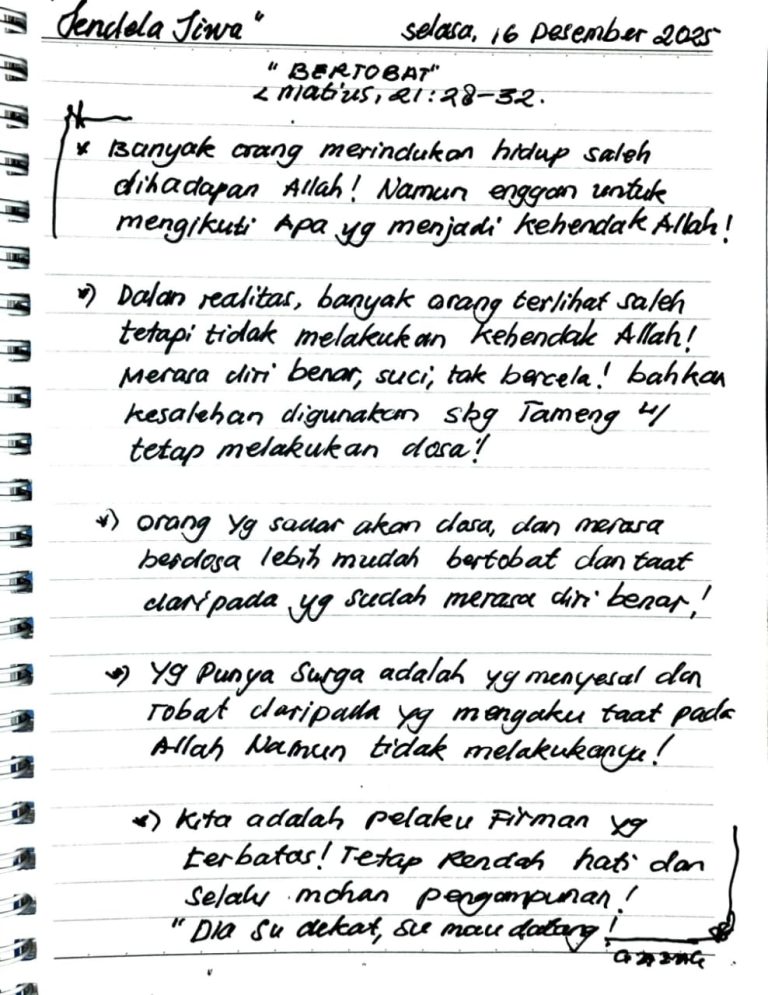 "Jendela Jiwa" Selasa, 16 Desember 2025
"BERTOBAT"
< Matius, 21:28-32.
* Banyak orang merindukan hidup saleh
dihadapan Allah! Namun enggan untuk
mengikuti Apa yg menjadi kehendak Allah!
*) Dalan realitas, banyak orang terlihat saleh
tetapi tidak melakukan kehendak Allah!
Merasa diri benar, suci, tak bercela! bahkan
kesalehan digunakan sbg Tameng u/
tetap melakukan dosa!
*) Orang yg sadar akan dosa, dan merasa
berdosa lebih mudah bertobat dan taat
daripada yg sudah merasa diri benar,!
*) Yg Punya Surga adalah yg menyesal dan
Tobat daripada yg mengaku taat pada
Allah Namun tidak melakukanya!
*) Kita adalah pelaku Firman yg
terbatas! Tetap Rendah hati dan
selalu mohan pengampunan!
"Dia su dekat, su mau datang!